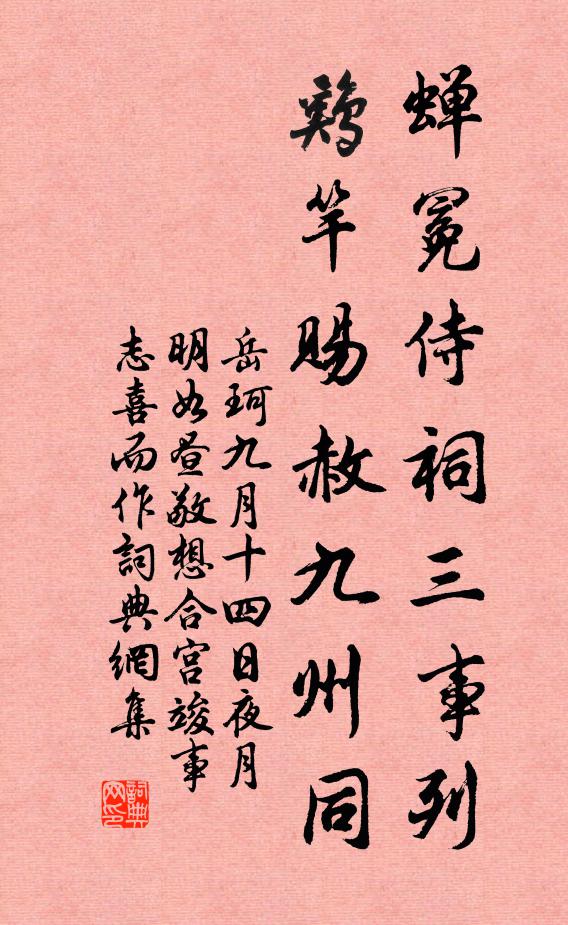 蝉冕侍祠三事列
鷄竿賜赦九州同
岳珂九月十四日夜月
明如昼敬想合宫竣事
志喜而作詞典網集
詞典网印